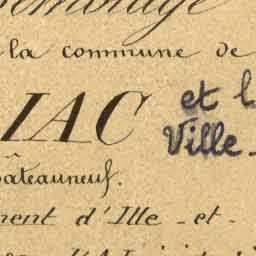 la commune de
IAC et l
Ville-
âteauneuf.
ment d'Ille-et-